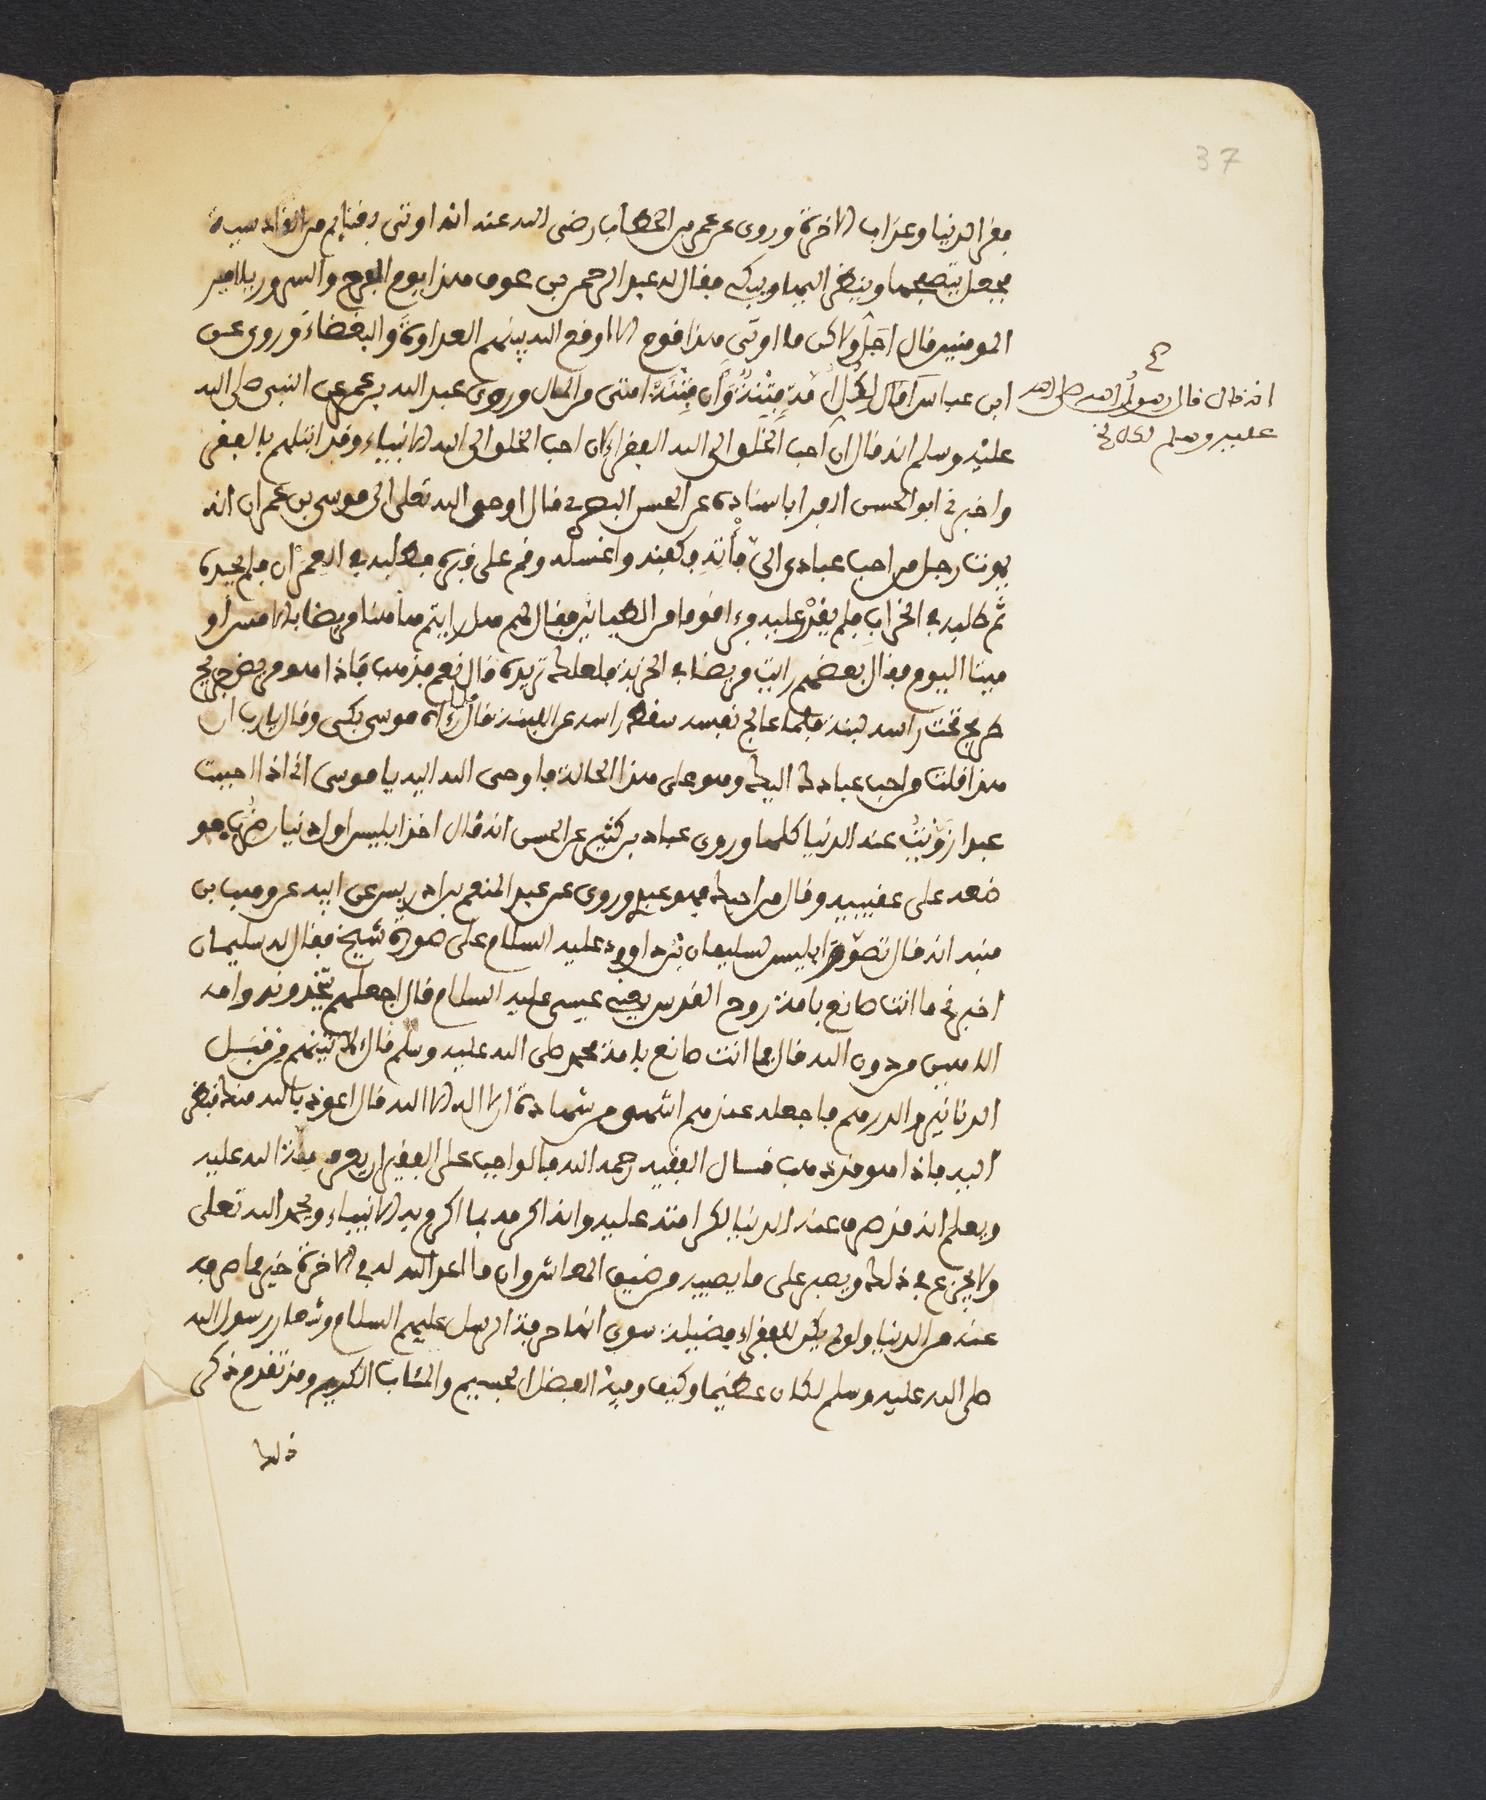 37
بفر الدنيا وعذاب الاخرة وروى عن عمر بن الخطاب رضى الله عنه انه اوتى بغنايم من القادسية
فجعل يتصفحها وينظر اليها ويبكى فقال له عبد الرحمن بن عوف هذا يوم الفرح والسرور يا امير
المومنين قال اجل ولاكن ما اوتى هذا قوم الا اوقع الله بينهم العداوة والبغضاء وروى عن
ابن عباس لكل امة فتنة وان فتنة امتى من المال وروى عبد الله بن عمر عن النبى صلى الله
انه قال قال رسول الله صلى الله
عليه وسلم
عليه وسلم انه قال ان احب الخلق الى الله الفقراء كان احب الخلق الى الله الانبياء وقد ابتلاهم بالفقر
واخبرنى ابو الحسن باسناده عن الحسن البصرى قال اوحى الله تعلى الى موسى بن عمران انه
يموت رجل من احب عبادى الى فأته فكفنه واغسله وقم على قبره فطلبه فى العمران فلم يجده
ثم طلبه فى الخراب فلم يقدر عليه فرءا قوما من الطيانين فقال لهم هل رايتم هاهنا مريضا بالامس او
ميتا اليوم فقال بعضهم رايت مريضا فى الخربة فلعلك تريده قال نعم فذهب فاذا هو مريض
طريح تحت راسه لبنة فلما عالج نفسه سقط راسه عن اللبنة قال فقام موسى بكى وقال يا رب ان
هذا قلت من احب عبادك اليك وهو على هذا الحالة فاوحى الله اليه يا موسى انى اذا احببت
عبدا زويت عنه الدنيا كلها وروى عباد بن كثير عن الحسن انه قال اخذ ابليس اول دينار ضرب فهو
ضعه على عينيه وقال من احبك فهو عبدى وروى عن عبد المنعم بن ادريس عن ابيه عن وهب بن
منبه انه قال تصور ابليس لسليمان بن داوود عليه السلام على صورة شيخ فقال له سليمان
اخبرنى ما انت صانع بامة روح القدس يعنى عيسى عليه السلام قال اجعلهم يتخذونه وامه
الاهين من دون الله قال فما انت صانع بامة محمد صلى الله عليه وسلم قال لاتينهم من قبل
الدنانير والدرهم فاجعله عندهم اشهى من شهادة ان لا اله الا الله قال اعوذ بالله منك فنظر
اليه فاذا هو قد ذهب قال الفقيه رحمه الله فالواجب على الفقير ان يعرف منة الله عليه
ويعلم انه قد صرف عنه الدنيا لكرامته عليه وانه اكرمه بما اكرم به الانبياء ويحمد الله تعلى
ولا يجزع فى ذلك ويصبر على ما يصيبه من ضيق المعاش وان ما اعد الله له فى الاخرة خير مما صرفه
عنه من الدنيا ولو لم يكن للفقراء فضيلة سوى انها حرفة الرسل عليهم السلام وشعار رسول الله
صلى الله عليه وسلم لكان عظيما وكيف وفيه الفضل الجسيم والثواب الكريم وقد تقدم ذكر
ذلك